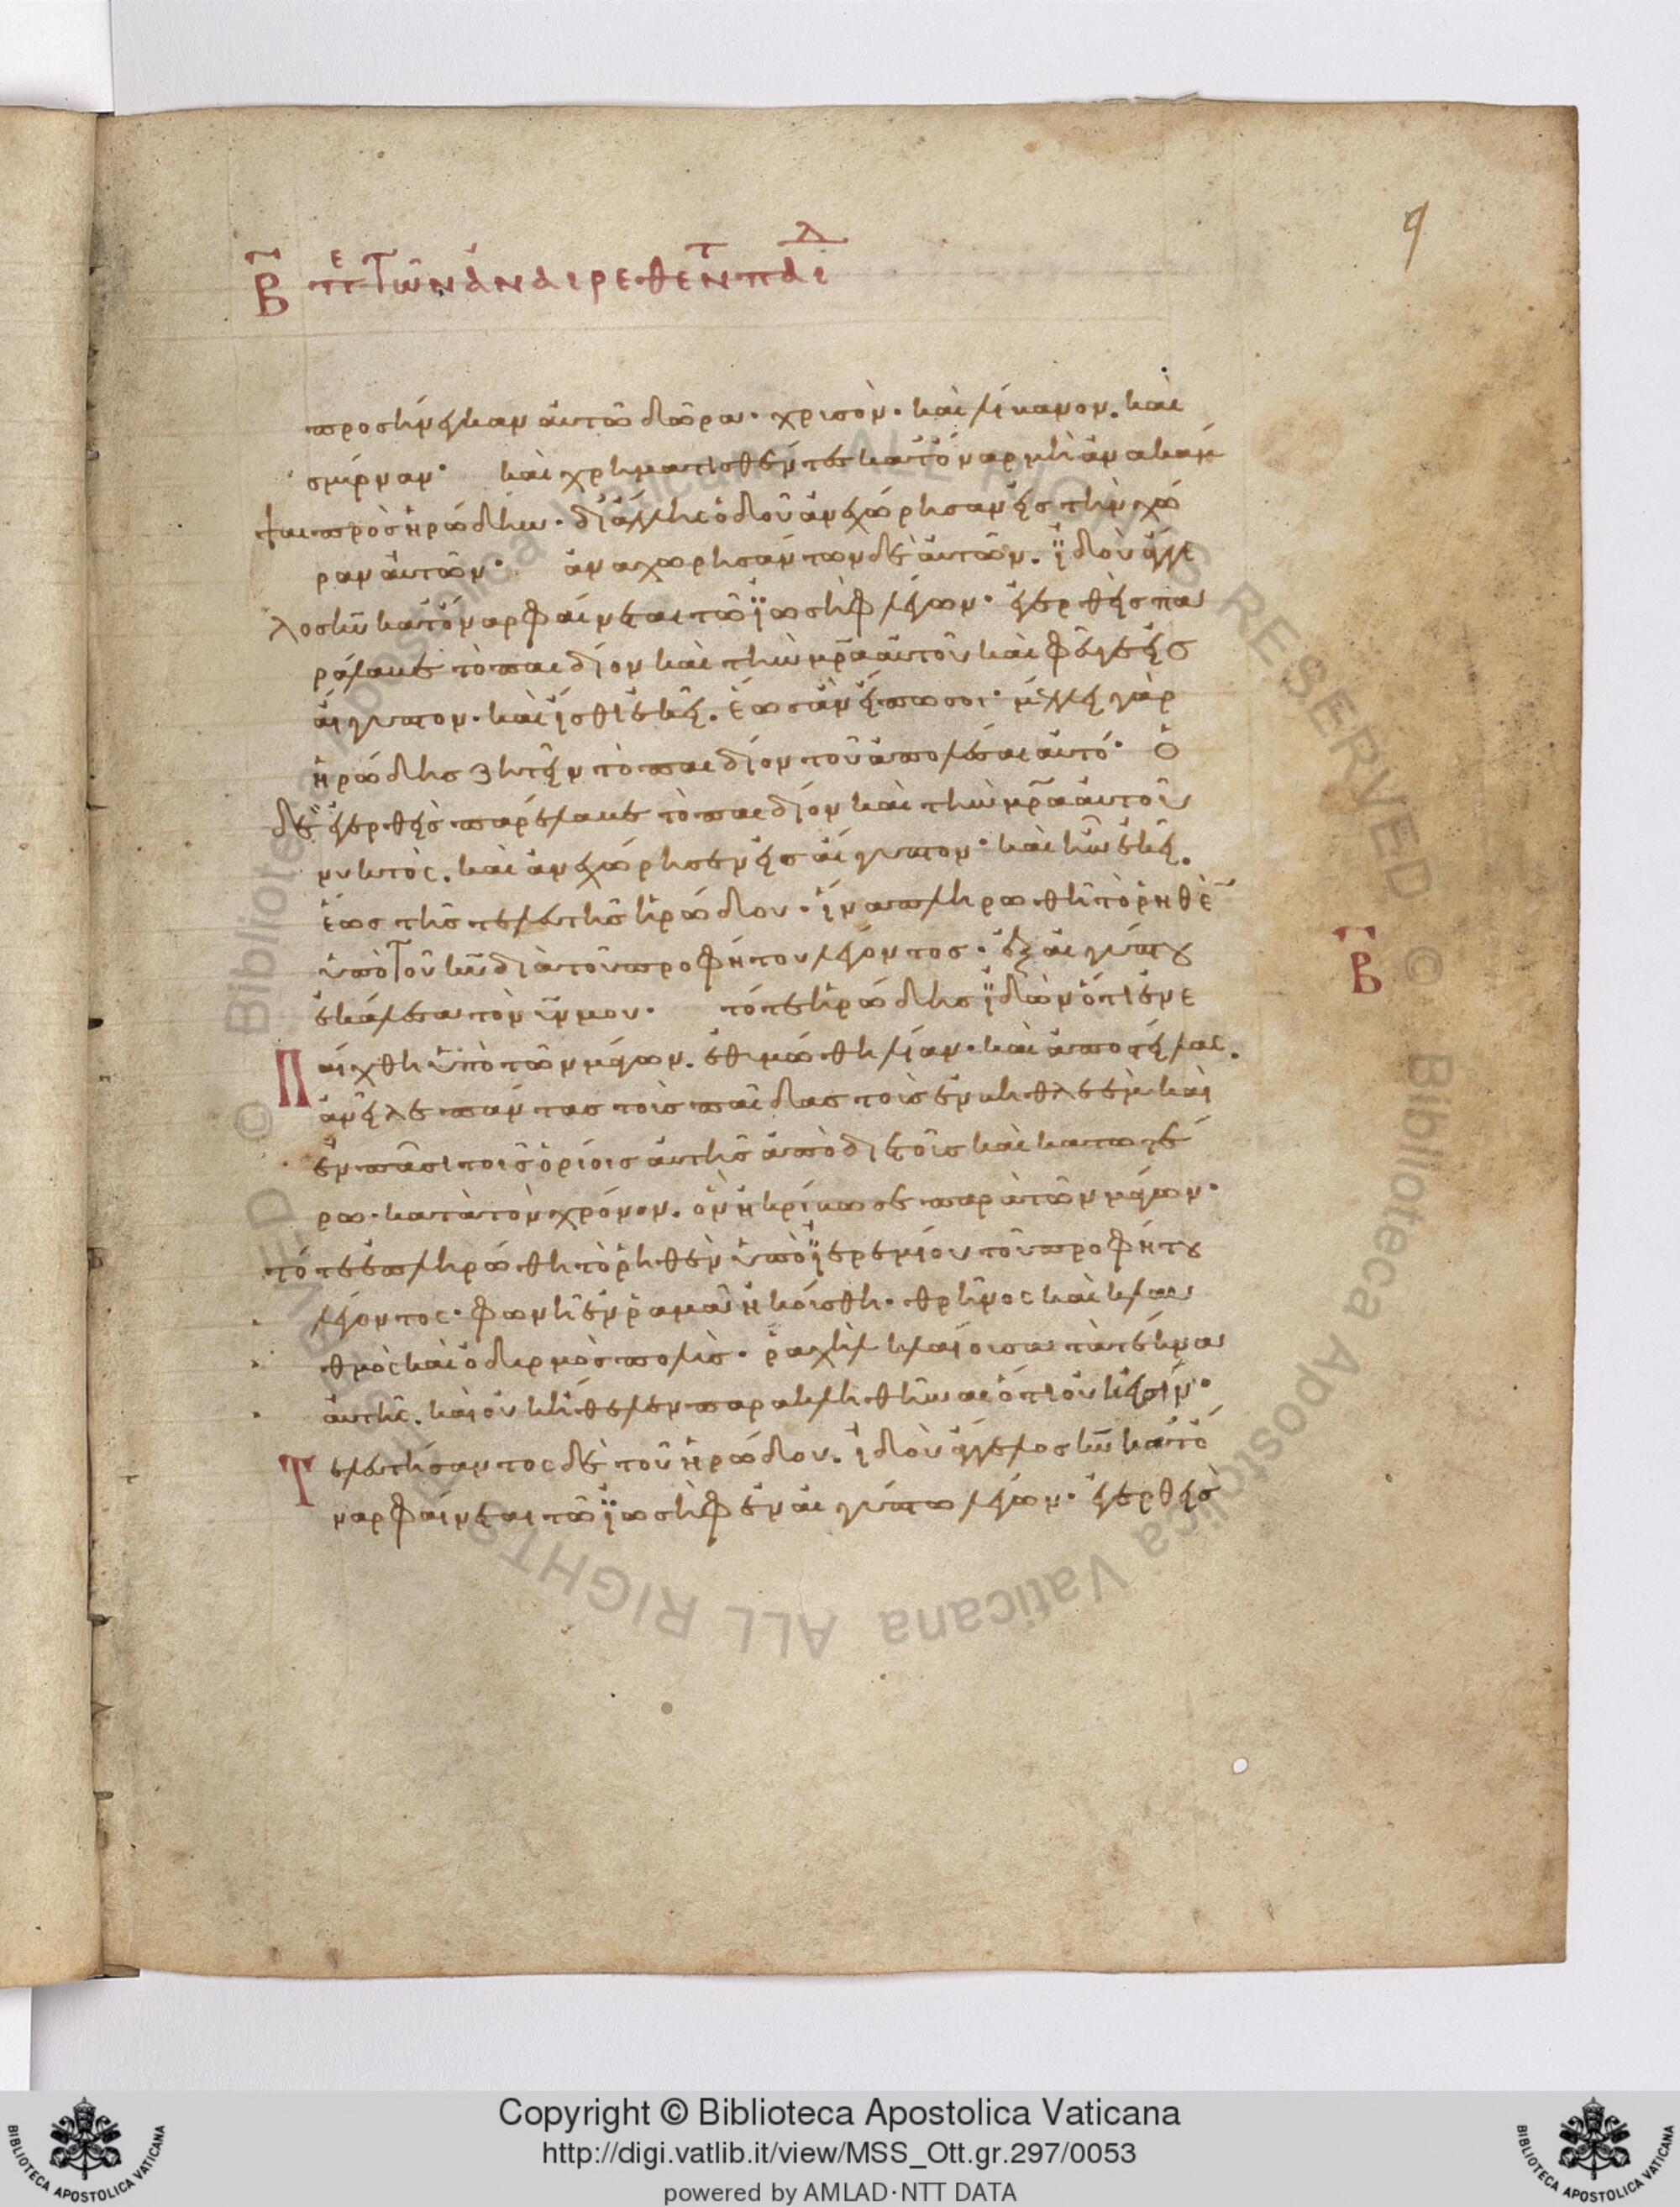 9
Β̅ πε Τῶν ἀναιρεθεντ παιδ
προσήνεγκαν αὐτῶ δῶρα· χρυσὸν· καὶ λίβανον. καὶ
σμύρναν· καὶ χρηματισθέντες κατ᾽ ὄναρ μὴ ἀνακάμ
ψαι πρὸς ἡρώδην· δι᾽ ἄλλης ὁδοῦ ἀνεχώρησαν εἰς τὴν χώ
ραν αὐτῶν· ἀναχωρησάντων δὲ αὐτῶν. ἰ̈δοὺ ἄγγε
λος κ̅υ̅ κατ᾽ ὄναρ φαίνεται τῶ ἰ̈ωσὴφ λέγων· ἐγερθεὶς πα
ράλαβε τὸ παιδίον καὶ τὴν μ̅ρ̅α̅ αὐτοῦ καὶ φεῦγε εἰς
αἴγυπτον· καὶ ἴσθι ἐκεῖ. ἕως ἂν εἴπω σοι· μέλλει γὰρ
ἡρώδης ζητεῖν τὸ παιδίον τοῦ ἀπολέσαι αὐτό· ὁ
δὲ ἐγερθεὶς παρέλαβε τὸ παιδίον καὶ τὴν μ̅ρ̅α̅ αὐτοῦ
νυκτὸς. καὶ ἀνεχώρησεν εἰς αἴγυπτον· καὶ ἦν ἐκεῖ.
ἕως τῆς τελευτῆς ἡρώδου· ἵνα πληρωθῆ τὸ ῥηθὲ̅
ὑπὸ Τοῦ κ̅υ̅ διὰ τοῦ προφήτου λέγοντος· ἐξ αἰγύπτου
ἐκάλεσα τὸν υ̅ν̅ μου· τότε ἡρώδης ἰ̈δὼν ὅτι ἐνε
Παίχθη ὑπὸ τῶν μάγων. ἐθυμώθη λίαν· καὶ ἀποστείλας.
ἀνεῖλε πάντας τοὺς παῖδας τοὺς ἐν βηθλεὲμ καὶ
ἐν πᾶσι τοῖς ὁρίοις αὐτῆς ἀπὸ διετοῦς καὶ κατωτέ
ρω· κατὰ τὸν χρόνον. ὃν ἠκρίβωσε παρὰ τῶν μάγων·
τότε ἐπληρώθη τὸ ῥηθὲν ὑπὸ ἰ̈ερεμίου τοῦ προφήτου
λέγοντος· φωνὴ ἐν ῥαμᾶ ἠκούσθη· θρῆνος καὶ κλαυ
θμὸς καὶ ὀδυρμὸς πολὺς· ῥαχὴλ κλαίουσα τὰ τέκνα
αὐτῆς. καὶ οὐκ ἤθελεν παρακληθῆναι ὅτι οὐκ εἰσίν·
Τελευτήσαντος δὲ τοῦ ἡρώδου. ἰδοὺ ἄγγελος κ̅υ̅ κατ᾽ ὄ
ναρ φαίνεται τῶ ἰ̈ωσὴφ ἐν αἰγύπτω λέγων· ἐγερθεὶς
Β̅
Copyright © Biblioteca Apostolica Vaticana
http://digi.vatlib.it/view/MSS_Ott.gr.297/0053
powered by AMLAD·NTT DATA
BIBLIOTECA APOSTOLICA VATICANA
BIBLIOTECA APOSTOLICA VATICANA